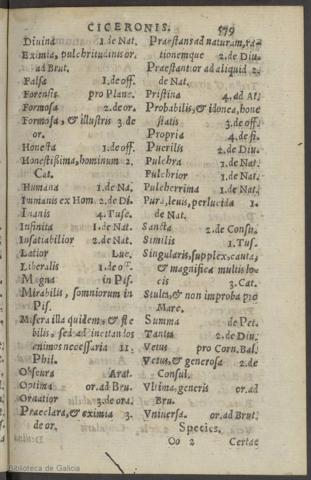 CICERONIS. 579
Diuina 1. de Nat.
Eximia, pulchritudinis or.
ad Brut.
Falsa 1. de off.
Forensis pro Planc.
Formosa 2. de or.
Formosa, & illustris 3. de
or.
Honesta 1. de off.
Honestißima, hominum 2.
Cat.
Humana 1. de Na.
Immanis ex Hom. 2. de Di.
Inanis 4. Tusc.
Infinita 1. de Nat.
Insatiabilior 2. de Nat.
Latior Luc.
Liberalis 1. de off.
Magna in Pis.
Mirabilis, somniorum in
Pis.
Misera illa quidem, & fle
bilis, sed ad incitandos
animos necessaria 11.
Phil.
Obscura Arat.
Optima or. ad Bru.
Ornatior 3. de ora.
Praeclara, & eximia 3.
de or.
Praestans ad naturam, ra-
tionemque 2. de Diu.
Praestantior ad aliquid 2.
de Nat.
Pristina 4. ad At.
Probabilis, & idonea, hone
statis 3. de off.
Propria 4. de fi.
Puerilis 2. de Diu.
Pulchra 1. de Nat.
Pulchrior 1. de Nat.
Pulcherrima 1. de Nat.
Pura, leuis, perlucida 1.
de Nat.
Sancta 2. de Consu.
Similis 1. Tus.
Singularis, supplex, cauta,
& magnifica multis lo
cis 3. Cat.
Stulta, & non improba pro
Mare.
Summa de Pet.
Tantis 2. de Diu.
Vetus pro Corn. Bal.
Vetus, & generosa 2. de
Consul.
Vltima, generis or. ad
Bru.
Vniuersa. or. ad Brut.
Species.
Oo 2 Certae
Biblioteca de Galicia